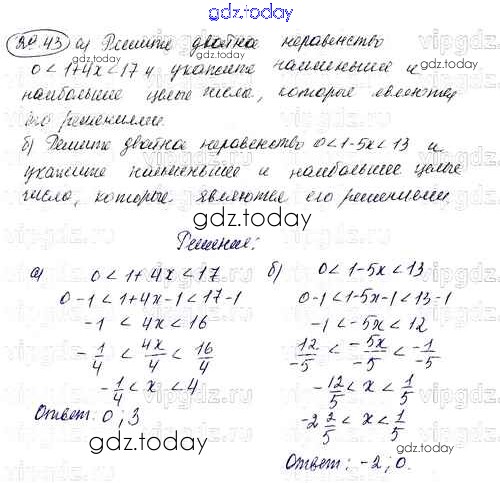 gdz.today
№ 43 а) Решите двойное неравенство
0 < 1+4x < 17 и укажите наименьшее и
наибольшее целые числа, которые являются
его решениями.
б) Решите двойное неравенство 0<1-5x<13 и
укажите наименьшее и наибольшее целые
числа, которые являются его решениями
gdz.today
Решение:
а) 0 < 1 + 4x < 17
0-1 < 1+4x-1 < 17-1
-1 < 4x < 16
-1/4 < 4x/4 < 16/4
-1/4 < x < 4
Ответ: 0; 3
б) 0 < 1-5x < 13
0-1 < 1-5x-1 < 13-1
-1 < -5x < 12
12/-5 < -5x/-5 < -1/-5
-12/5 < x < 1/5
-2 2/5 < x < 1/5
Ответ: -2; 0.
gdz.today